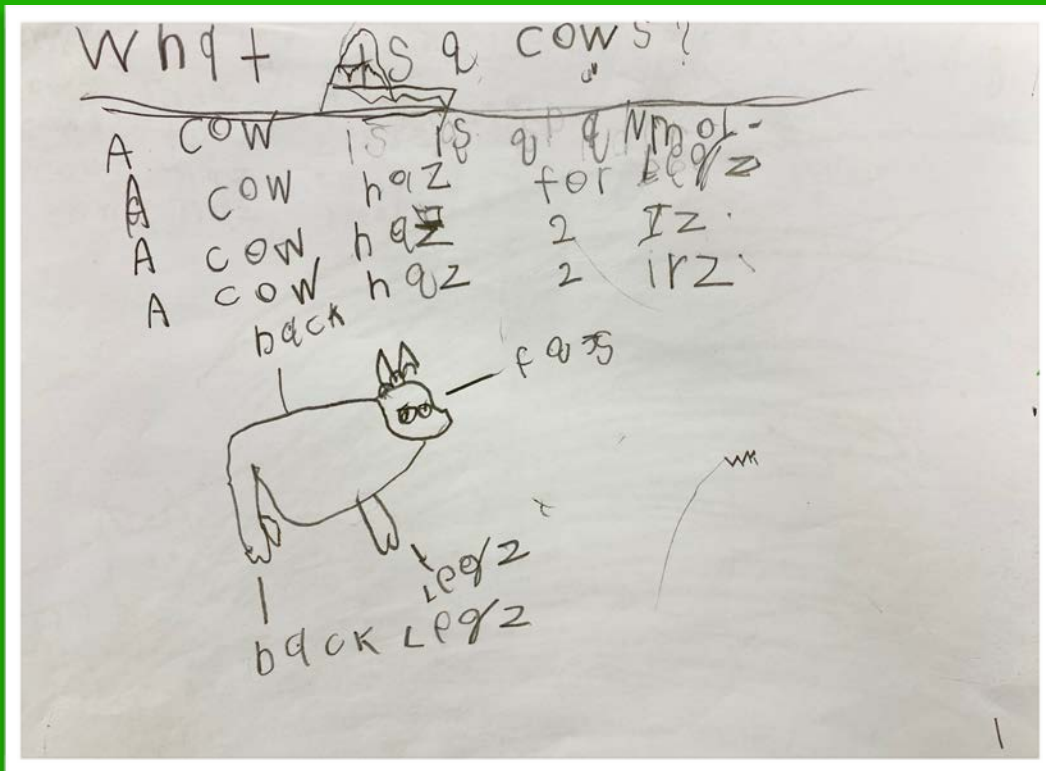 What is a cows?
A cow is is a aNmol.
A cow haz for legz
A cow haz 2 Iz.
A cow haz 2 irz.
back
fas
Legz
back Legz
1